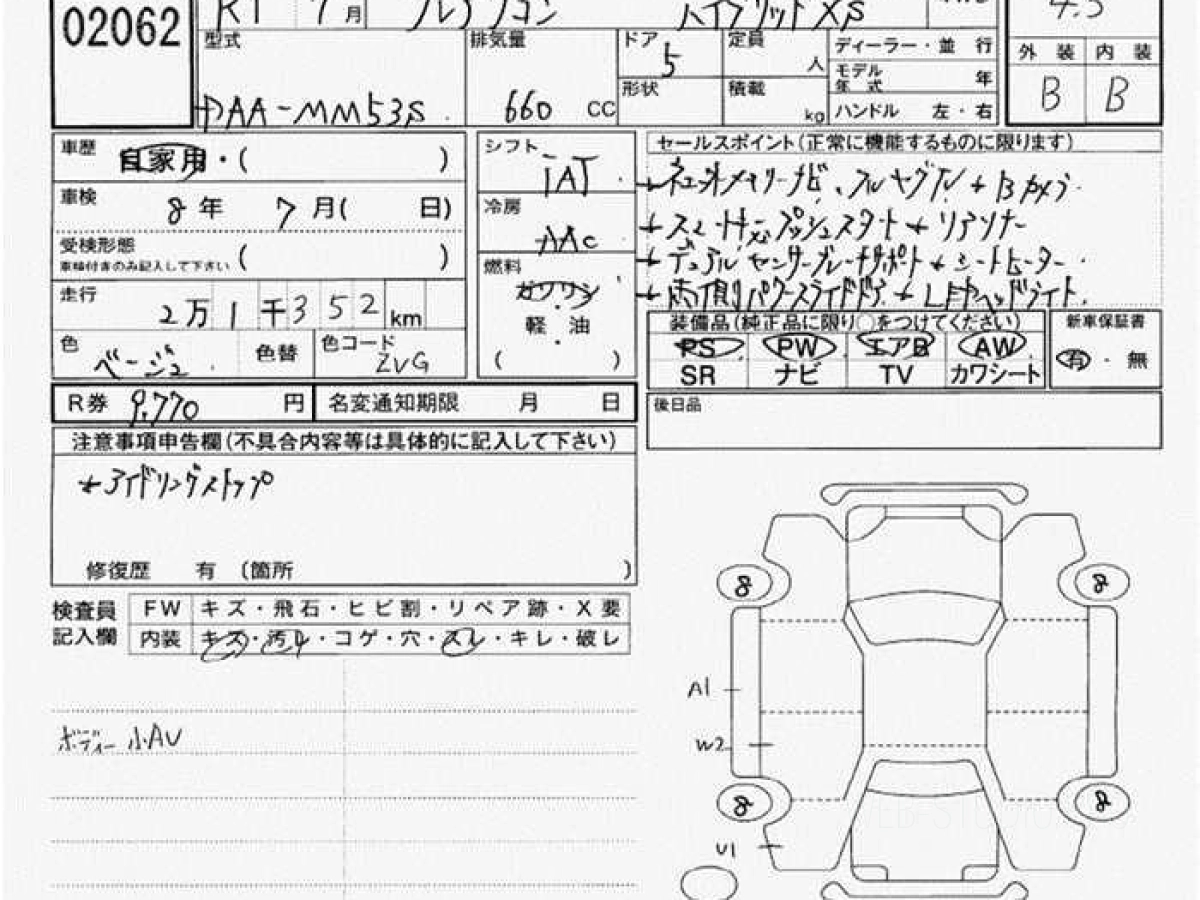 02062
R1 7月 フレアワゴン ハイブリッドXS
4.5
型式 DAA-MM53S
排気量 660 CC
ドア 5
形状
定員 人
積載 kg
ディーラー・並 行
モデル年式 年
ハンドル 左・右
外 装 内 装
B B
車歴 自家用・( )
車検 8年 7月( 日)
受検形態 ( )
車輪付きのみ記入して下さい
走行 2万1千352km
色 ベージュ 色替 色コード ZVG
シフト IAT
冷房 AAC
燃料 ガソリン
・
軽 油
( )
セールスポイント(正常に機能するものに限ります)
+スマートキー プッシュスタート + リアソナー
+デュアルセンサーブレーキサポート + シートヒーター
+両側パワースライドドア + LEDヘッドライト
装備品(純正品に限り○をつけてください)
PS PW エアB AW
SR ナビ TV カワシート
新車保証書
有・無
R券 9,770 円 名変通知期限 月 日
後日品
注意事項申告欄(不具合内容等は具体的に記入して下さい)
+アイドリングストップ
修復歴 有 〔箇所 )
検査員記入欄
FW キズ・飛石・ヒビ割・リペア跡・X要
内装 キズ・汚レ・コゲ・穴・スレ・キレ・破レ
ボディー小AU
8 8
A1
W2
8 8
U1